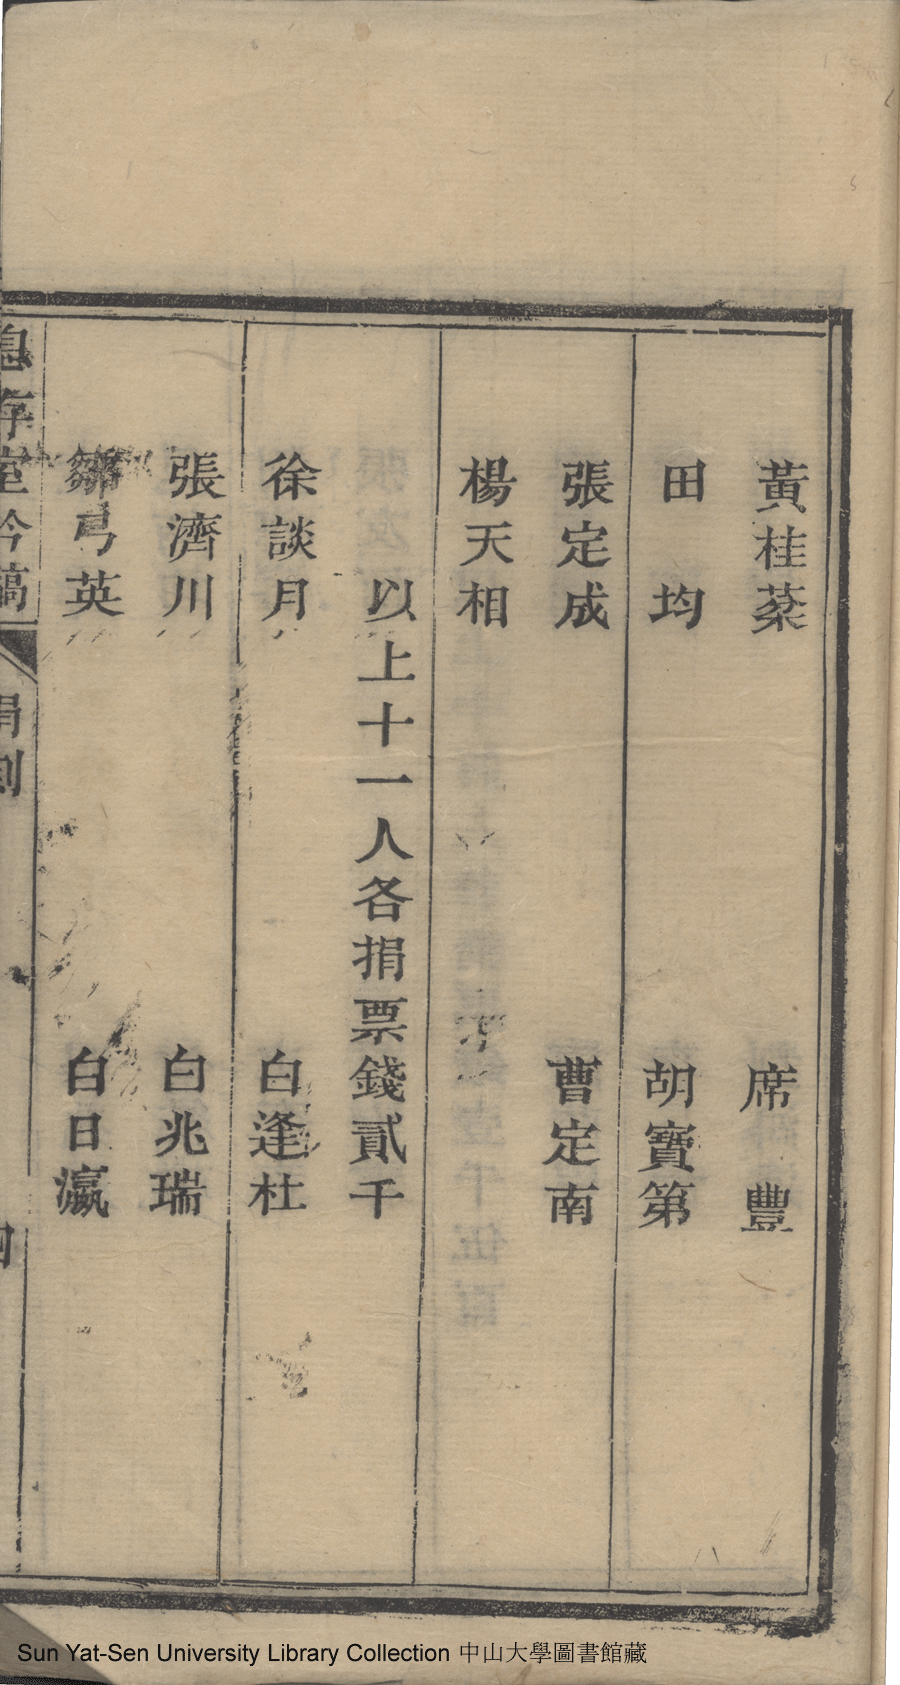 黃桂蕖 席豐
田均 胡寶第
張定成 曹定南
楊天相
以上十一人各捐票錢貳千
徐談月 白逢杜
張濟川 白兆瑞
鄒弓英 白日瀛
息存室吟稿 捐刻 四
Sun Yat-Sen University Library Collection 中山大學圖書館藏